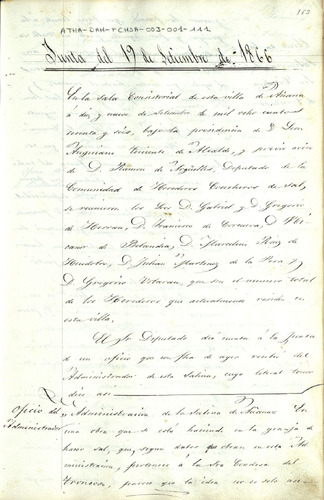 163
ATHA-DAH-FCHSA-003-001-111
Junta del 19 de Setiembre de 1866
En la Sala Consistorial de esta villa de Añana
á diez y nueve de Setiembre de mil ocho cientos
sesenta y seis, bajo la presidencia de D. Leon
Angiano teniente de Alcalde, y previo aviso
de D. Ramon de Argüelles, Diputado de la
Comunidad de Herederos Concheros de sal,
se reunieron los Sres. D. Gabriel y D. Gregorio
de Herran, D. Francisco de Corcuera, D.
canor de D. Marcelino Ruiz de
Huidobro, D. Julian Martinez de la Pera y
D. Gregorio que son el numero total
de los Herederos que actualmente residen en
esta villa.
El Sr. Diputado dió cuenta á la Junta
de un oficio que con fha de ayer recibió del
Administrador de esta Salina, cuyo literal tenor
dice asi
Oficio del
Administrador
"Administracion de la Salina de Añana= En
una obra que se está haciendo en la granja de
hacer sal, que, segun datos que obran en esta Ad-
ministracion, pertenece á la Sra Condesa del
parece que la idea no es solo